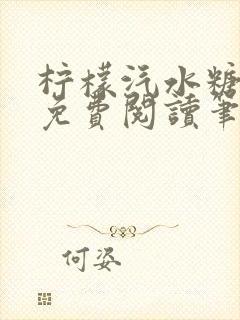 柠檬汽水糖
免費閱讀筆
何姿